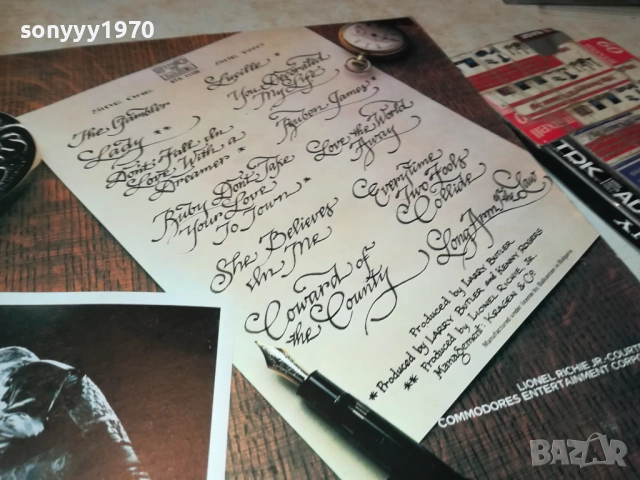 sonyyy1970
SIDE ONE
The Gambler
Lady **
Don't Fall In
Love With a
Dreamer *
Ruby Don't Take
Your Love
To Town *
She Believes
In Me
Coward of
the County
SIDE TWO
Lucille *
You Decorated
My Life
Reuben James *
Love the World
Away
Every Time
Two Fools
Collide
Long Arm of the Law
Produced by Larry Butler
* Produced by Larry Butler and Kenny Rogers
** Produced by Lionel Richie Jr.
Management: Kragen & Co.
LIONEL RICHIE JR-COURT
COMMODORES ENTERTAINMENT CORP
60
maxell
TDK
AD
BAZAR
.bg